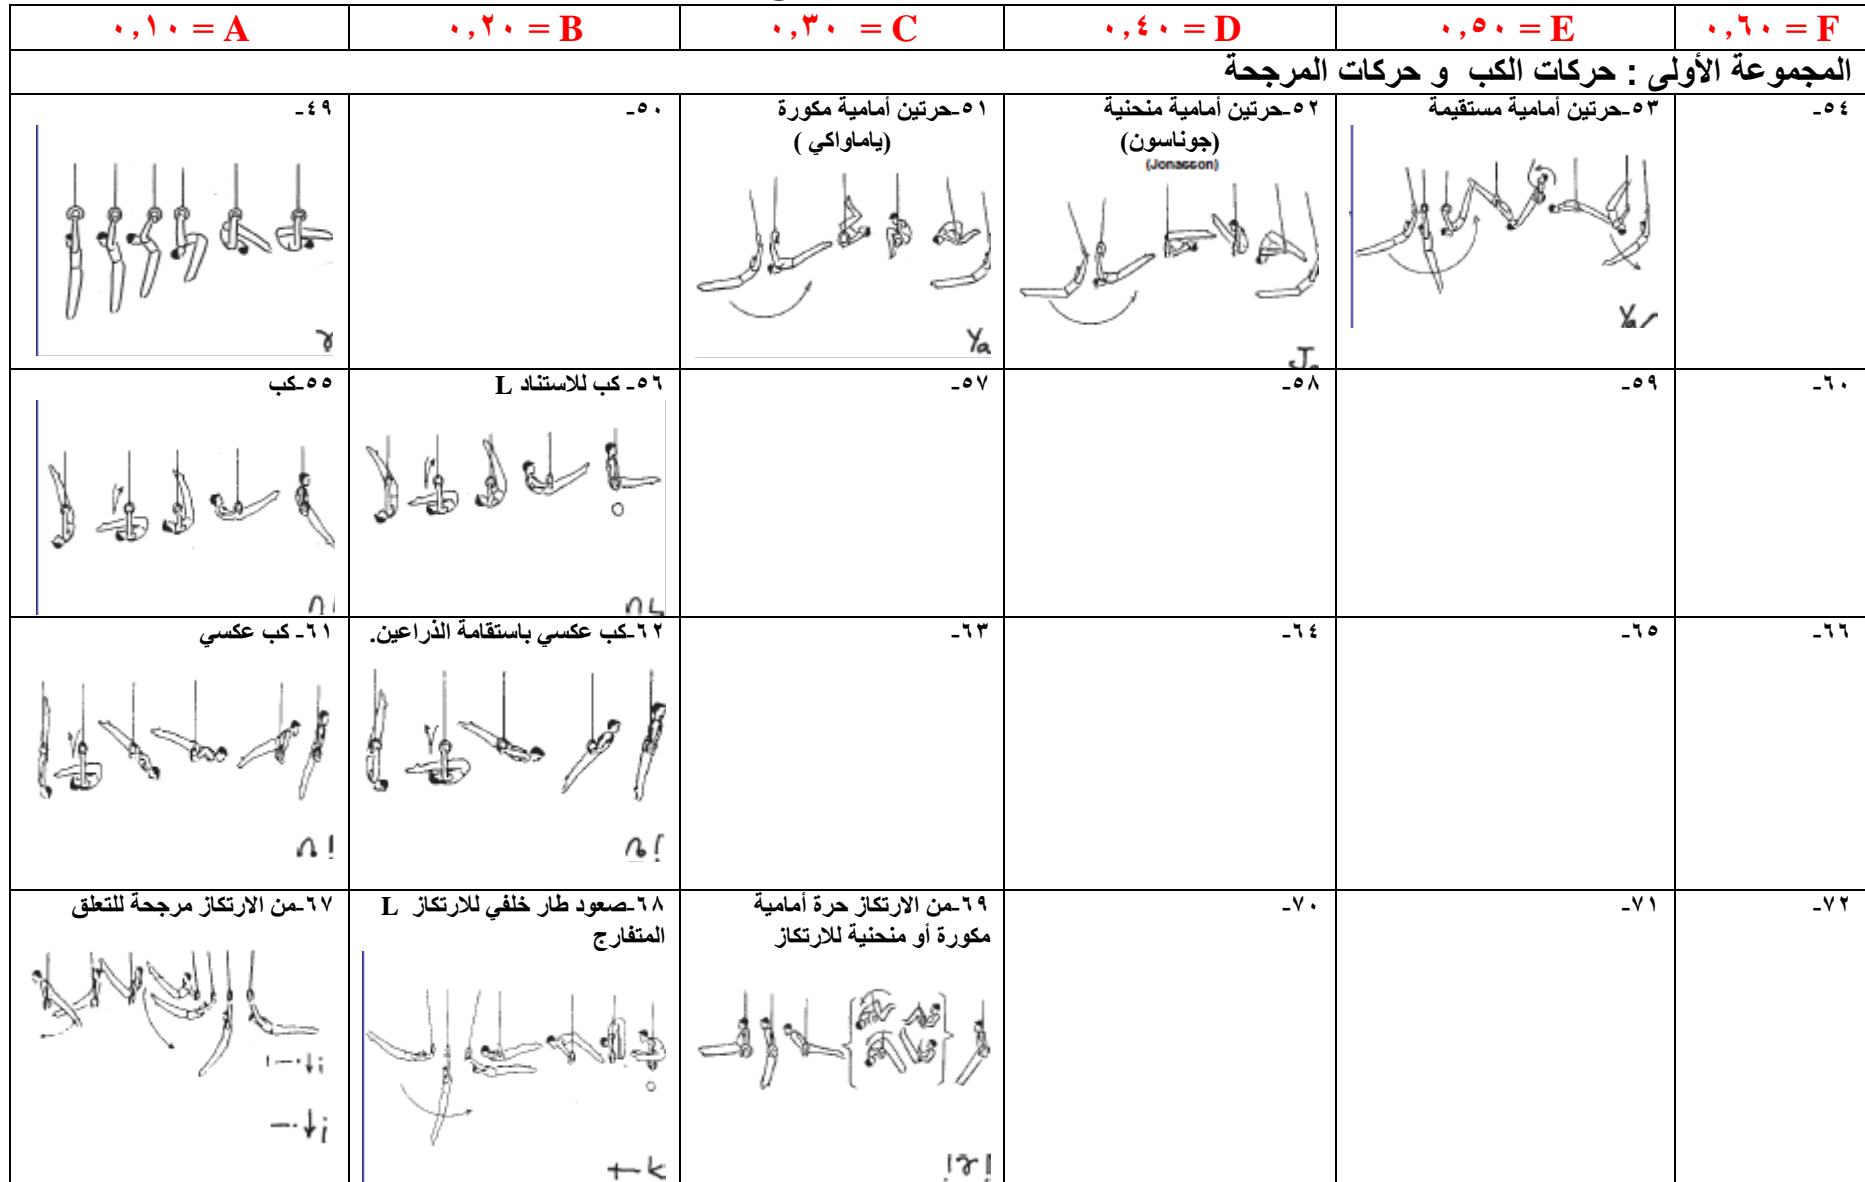 ٠,١٠ = A
٠,٢٠ = B
٠,٣٠ = C
٠,٤٠ = D
٠,٥٠ = E
٠,٦٠ = F
المجموعة الأولى : حركات الكب و حركات المرجحة
٤٩-
٥٠-
٥١-حرتين أمامية مكورة
(ياماواكي )
Ya
٥٢-حرتين أمامية منحنية
(جوناسون)
(Jonasson)
٥٣-حرتين أمامية مستقيمة
Ya
٥٤-
٥٥-كب
٥٦- كب للاستناد L
٥٧-
٥٨-
٥٩-
٦٠-
٦١- كب عكسي
٦٢-كب عكسي باستقامة الذراعين.
٦٣-
٦٤-
٦٥-
٦٦-
٦٧-من الارتكاز مرجحة للتعلق
٦٨-صعود طار خلفي للارتكاز L
المتفارج
٦٩-من الارتكاز حرة أمامية
مكورة أو منحنية للارتكاز
٧٠-
٧١-
٧٢-